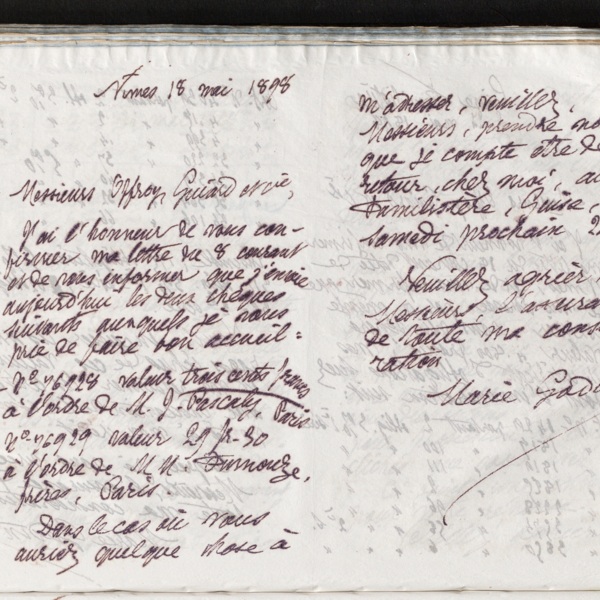 Nimes 18 mai 1898
Messieurs Offroy, Guiard et Cie,
J'ai l'honneur de vous con-
firmer ma lettre du 8 courant
et de vous informer que j'envoie
aujourd'hui les deux chèques
suivants auxquels je vous
prie de faire bon accueil =
No 76928 valeur trois cents francs
à l'ordre de M. J. Pascaly, Paris
No 76929 valeur 29 fr-30
à l'ordre de M.M. Dumouze,
frères, Paris.
Dans le cas où vous
auriez quelque chose à
m'adresser, veuillez,
Messieurs, prendre no
que je compte être de
retour, chez moi, au
Familistère, Guise,
samedi prochain 2
Veuillez agréer
Messieurs, l'assura
de toute ma cons
ration
Marie God